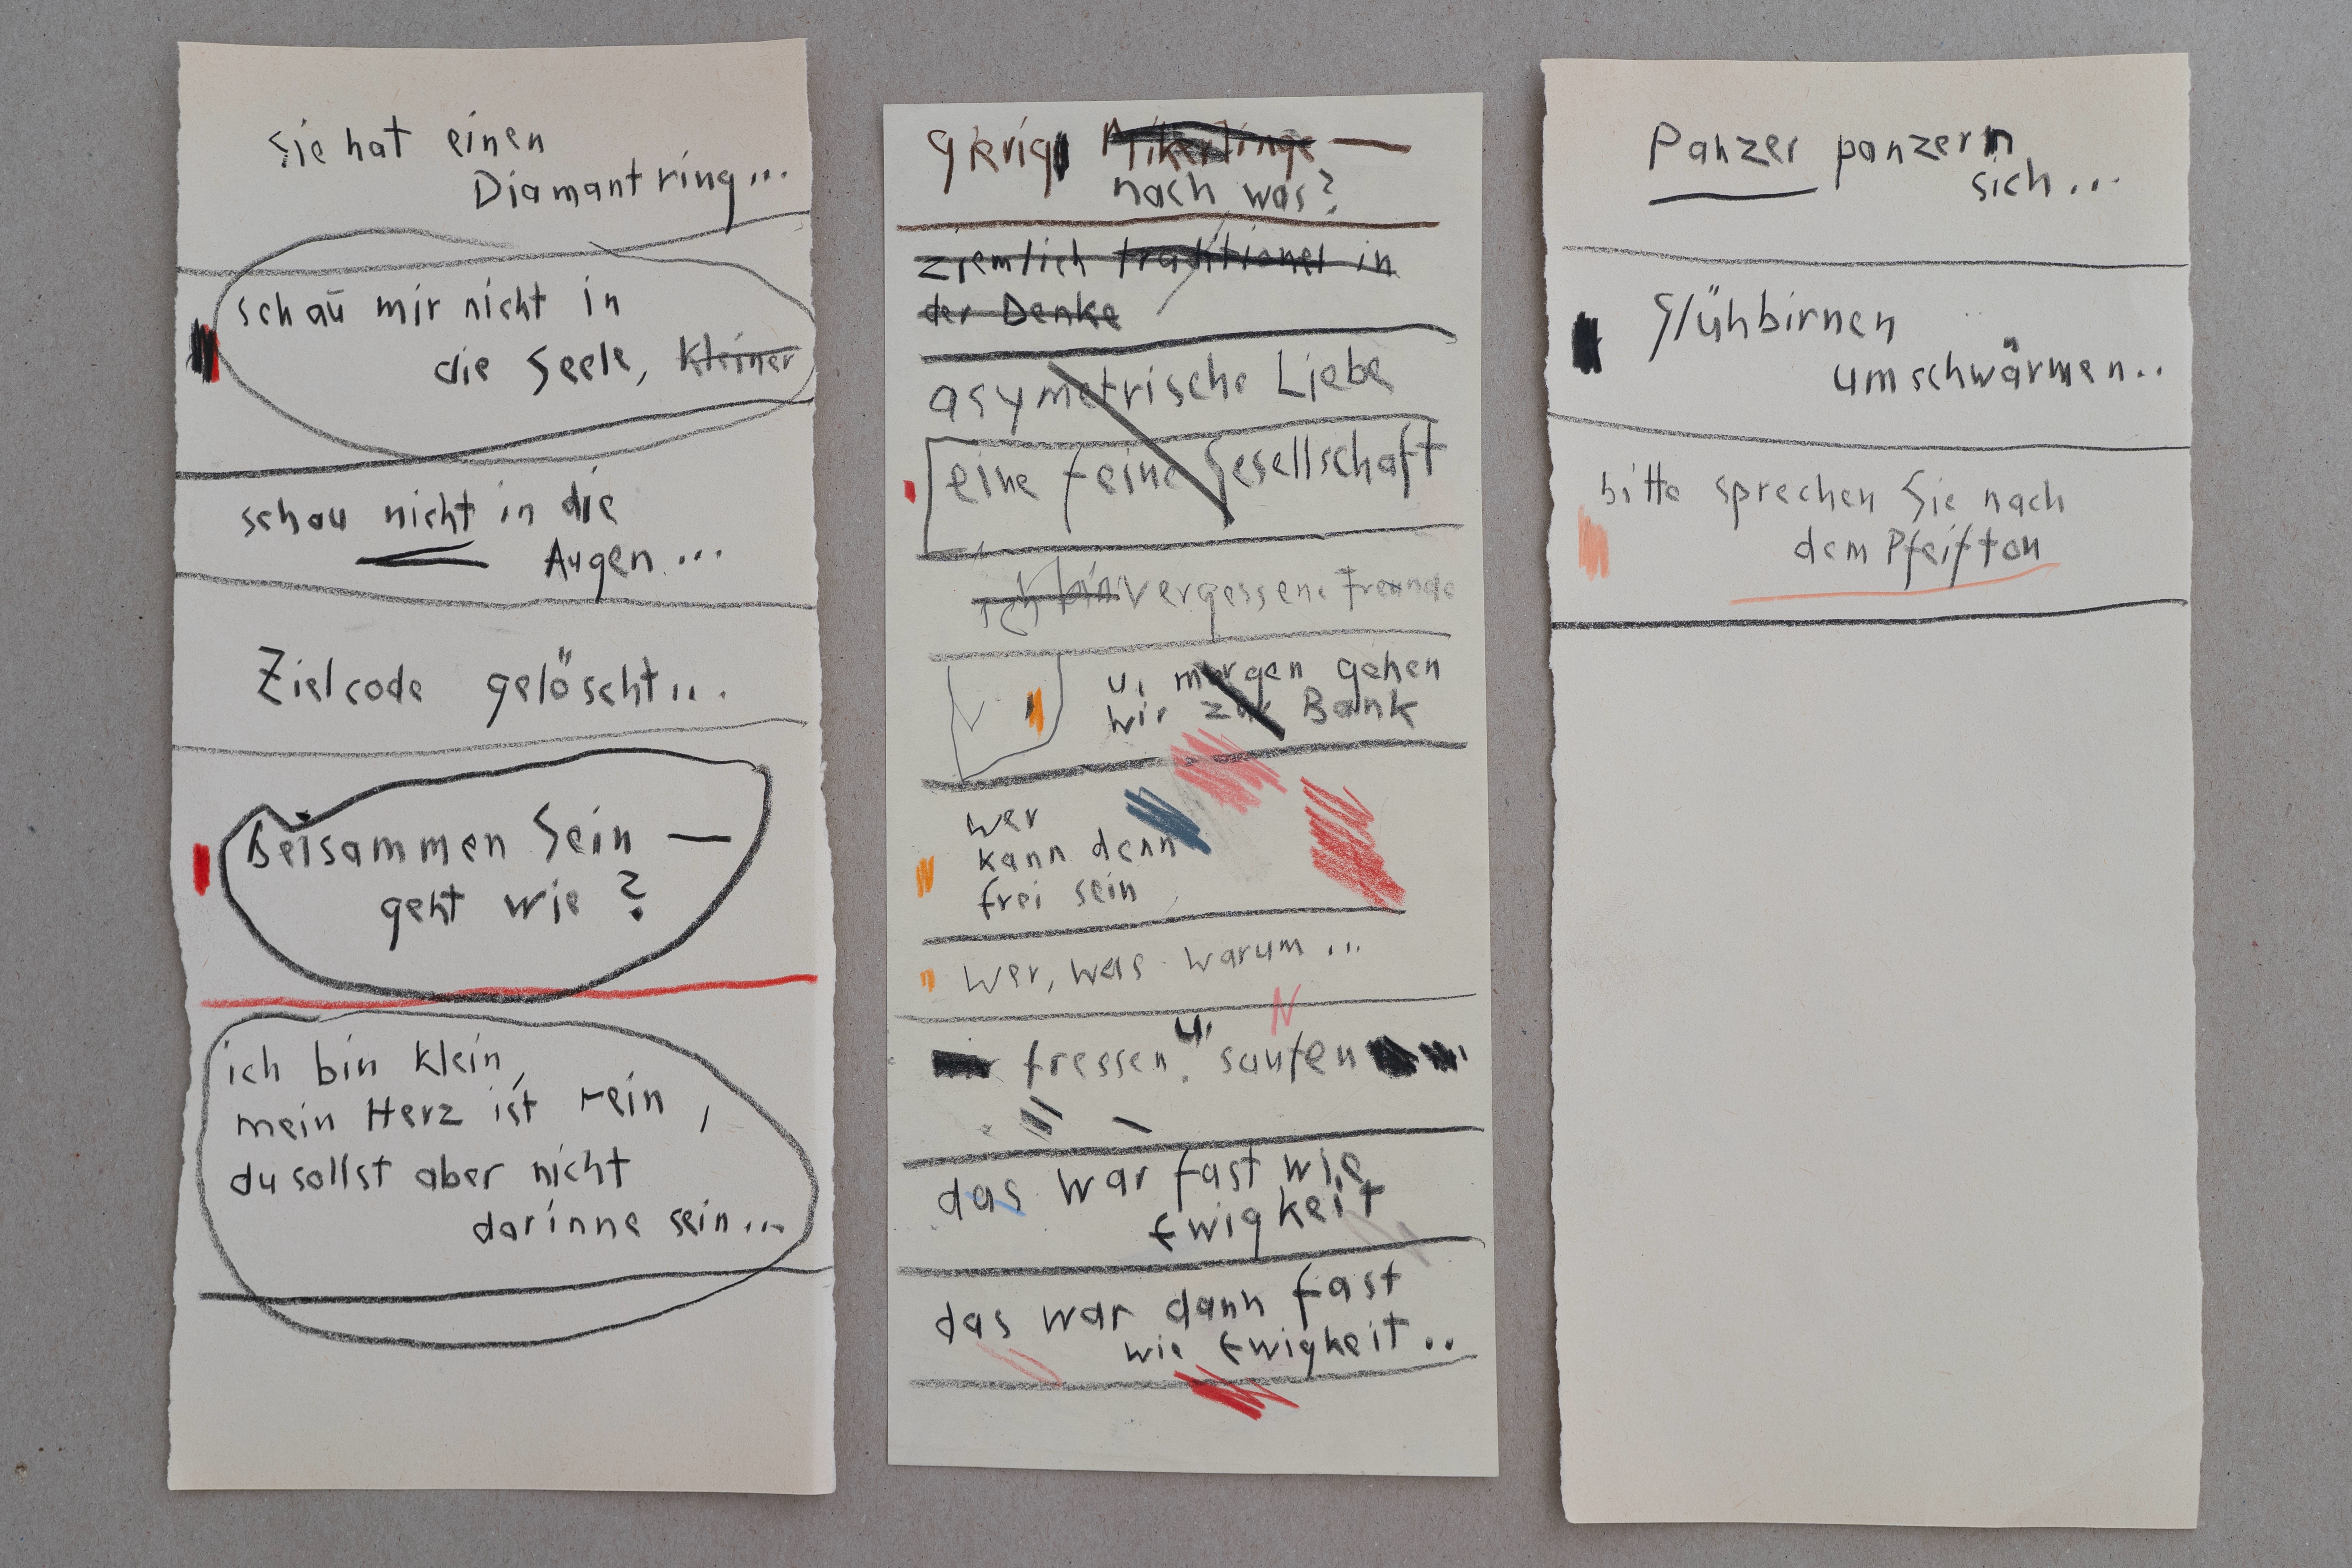 sie hat einen
Diamantring...
schau mir nicht in
die Seele, kleiner
schau nicht in die
Augen...
Zielcode gelöscht...
Beisammen Sein —
geht wie?
ich bin klein,
mein Herz ist rein,
du sollst aber nicht
darinne sein...
gierig —
nach was?
ziemlich traditionel in
der Denke
asymetrische Liebe
eine feine Gesellschaft
ich bin vergessene Freunde
u. morgen gehen
wir zur Bank
wer
kann denn
frei sein
wer, was warum...
fressen u. saufen
das war fast wie
Ewigkeit
das war dann fast
wie Ewigkeit..
Panzer panzern
sich...
Glühbirnen
umschwärmen..
bitte sprechen Sie nach
dem Pfeifton